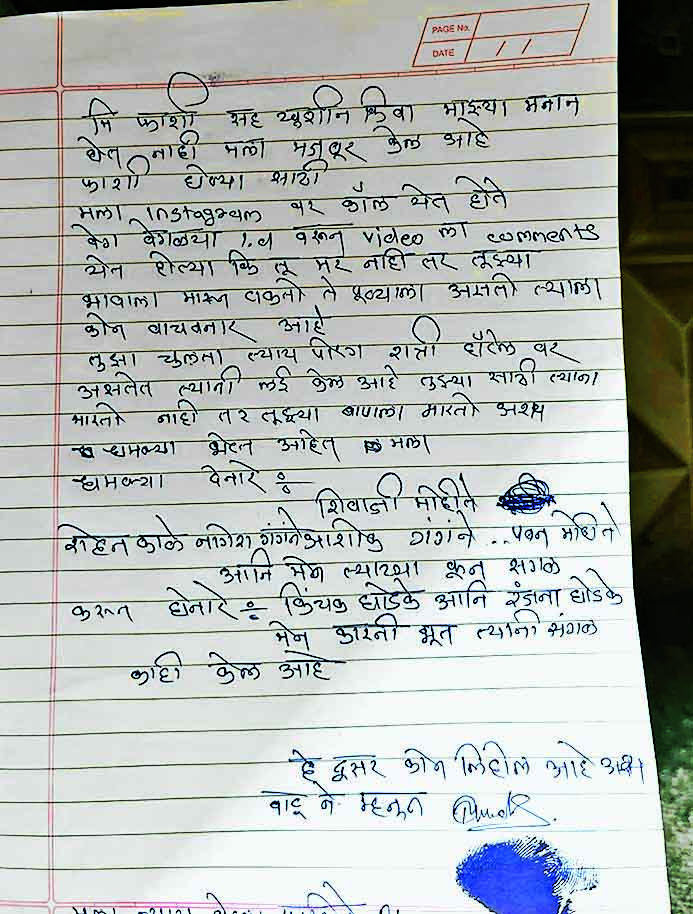 PAGE No.
DATE / /
मि फाशी सह खुशीन किवा माझ्या मनान
घेत नाही मला मजबूर केल आहे
फाशी घेण्या साठी
मला Instagram वर कॉल येत होते
वेग वेगळ्या I.d वरून video ला comments
येत होत्या कि तू मर नही तर तूझ्या
भावाला मारून टाकतो ते पूण्याला असतो त्याला
कोन वाचवनार आहे
तुझा चुलता रात्री हॉटेल वर
असतेत त्यानी लई केल आहे तुझ्या साठी त्याना
मारतो नाही तर तूझ्या बापाला मारतो अश्या
धमक्या भेटत आहेत मला
धमक्या देनारे :-
शिवाजी मोहीते
रोहन काळे नागेश गंगंने आशोक गंगंने .. पवन मोहिते
आनि मेन त्याच्या कून सगळ
करून घेनारे :- किंचक घोडके आनि रंजना घोडके
मेन कारनी भूत त्यानी सगळ
काही केल आहे
हे दूसर कोन लिहील आहे अस
वाटू नये म्हनून